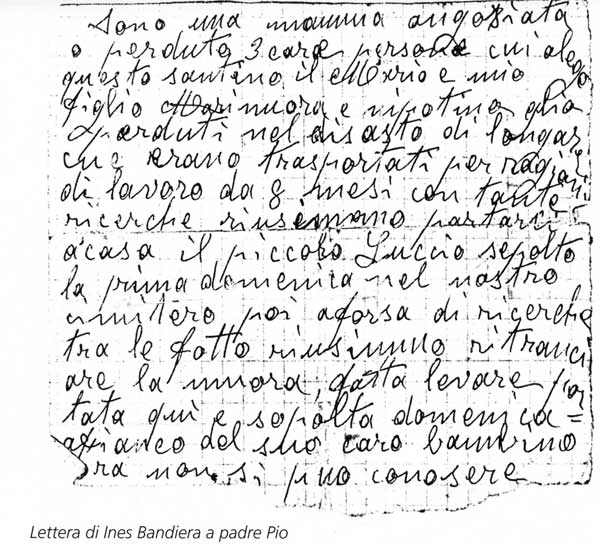 Sono una mamma angosiata
o perduto 3 care persone cui alego
questo santino il Mario e mio
figlio nuora e nipotino glio
perduti nel disasto di longar
che erano trasportati per ragioni
di lavoro da 8 mesi con tante
ricerche riusimmo portarci
a casa il piccolo Luccio sepolto
la prima domenica nel nostro
cimitero poi aforsa di ricerche
tra le fotto riusimmo ritracci
are la nuora, fatta levare por
tata qui e sepolta domenica =
afianco del suo caro bambino
Ora non si puo conosere
Lettera di Ines Bandiera a padre Pio